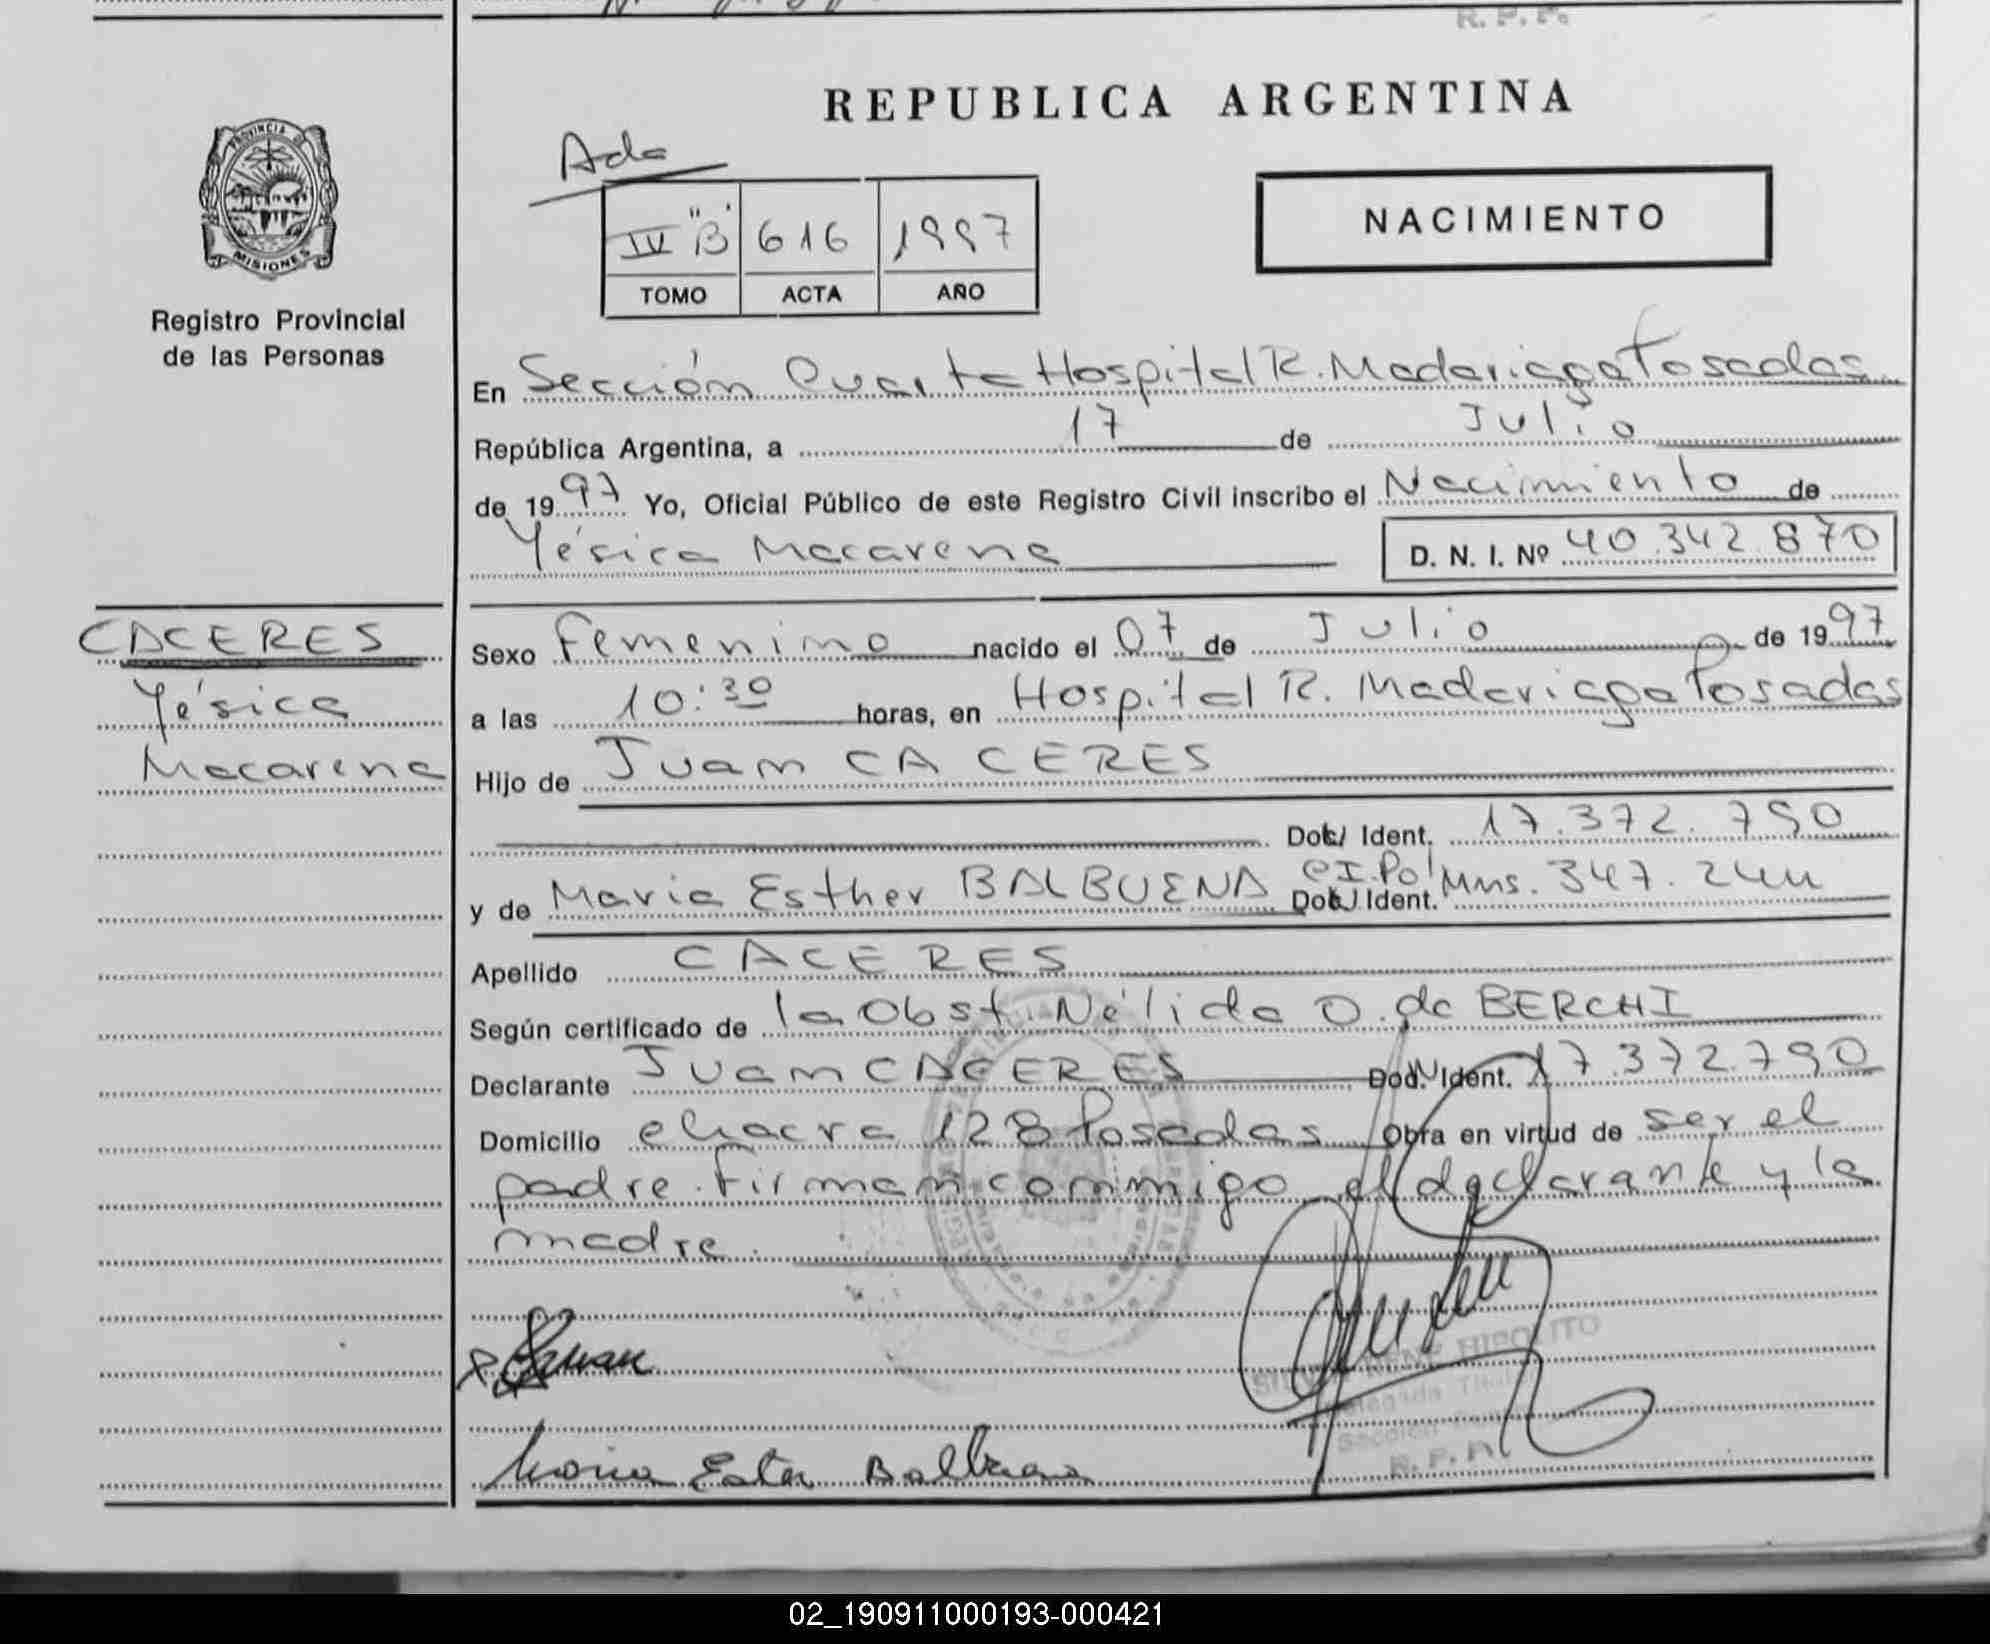 R. P. P.
REPUBLICA ARGENTINA
Ada
IV "B" 616 1997
TOMO ACTA AÑO
NACIMIENTO
PROVINCIA DE
MISIONES
Registro Provincial
de las Personas
En Sección Cuarta Hospital R. Madariaga Posadas
República Argentina, a 17 de Julio
de 1997 Yo, Oficial Público de este Registro Civil inscribo el Nacimiento de
Yésica Macarena D. N. I. Nº 40.342.870
CACERES
Yésica
Macarena
Sexo Femenino nacido el 07 de Julio de 1997
a las 10:30 horas, en Hospital R. Madariaga Posadas
Hijo de Juan CACERES
Doc. Ident. 17.372.790
y de Maria Esther BALBUENA Doc. Ident. CI. Pol Mns. 347.244
Apellido CACERES
Según certificado de la Obst. Nélida O. de BERCHI
Declarante Juan CACERES Doc. Ident. 17.372.790
Domicilio chacra 128 Posadas Obra en virtud de ser el
padre. Firman conmigo el declarante y la
madre.
HIPOLITO
Titular
Sección
R. P. P.
Maria Ester Balbuena
02_190911000193-000421